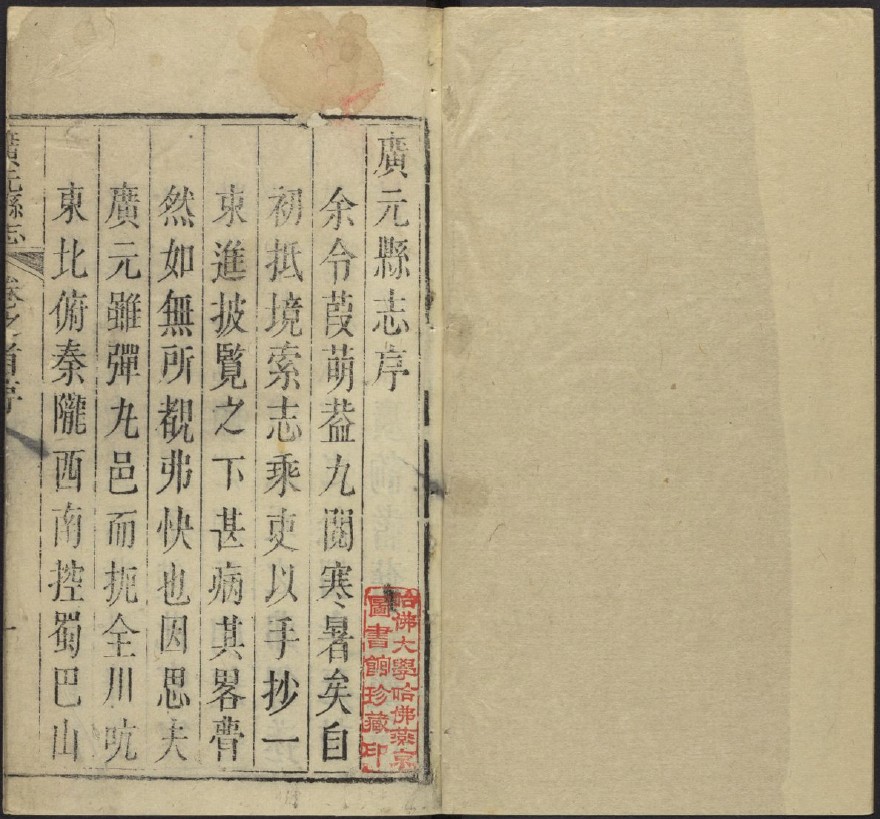 廣元縣志序
哈佛大學哈佛燕京
圖書館珍藏印
余令葭萌葢九閱寒暑矣自
初抵境索志乘吏以手抄一
束進披覽之下甚病其畧瞢
然如無所覩弗快也因思夫
廣元雖彈丸邑而扼全川吭
東北俯秦隴西南控蜀巴山
廣元縣志 卷之首序 一